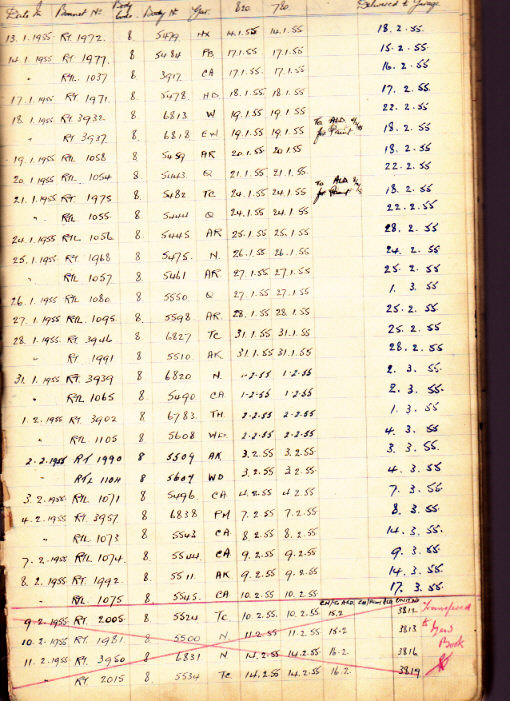 Date In Bonnet No Body Code Body No Gar. 820 780 Delivered to Garage
13.1.1955 RT 1972 8 5479 HX 14.1.55 14.1.55 18.2.55.
14.1.1955 RT 1977 8 5484 PB 17.1.55 17.1.55 15.2.55
" RTL 1037 8 3917 CA 17.1.55 17.1.55 16.2.55
17.1.1955 RT 1971 8 5478 HD 18.1.55 18.1.55 17.2.55
18.1.1955 RT 3932 8 6813 W 19.1.55 19.1.55 To ALD for Paint 22.2.55
" RT 3937 8 6818 EW 19.1.55 19.1.55 18.2.55
19.1.1955 RTL 1058 8 5459 AR 20.1.55 20.1.55 18.2.55
20.1.1955 RTL 1054 8 5443 Q 21.1.55 21.1.55 22.2.55
21.1.1955 RT 1975 8 5482 TC 24.1.55 24.1.55 To ALD for Paint 18.2.55
" RTL 1055 8 5444 Q 24.1.55 24.1.55 22.2.55
24.1.1955 RTL 1056 8 5445 AR 25.1.55 25.1.55 28.2.55
25.1.1955 RT 1968 8 5475 N. 26.1.55 26.1.55 24.2.55
" RTL 1057 8 5461 AR 27.1.55 27.1.55 25.2.55
26.1.1955 RTL 1080 8 5550 Q 27.1.55 27.1.55 1.3.55
27.1.1955 RTL 1095 8 5598 AR 28.1.55 28.1.55 25.2.55
28.1.1955 RT 3946 8 6827 TC 31.1.55 31.1.55 25.2.55
" RT 1991 8 5510 AK 31.1.55 31.1.55 28.2.55
31.1.1955 RT 3939 8 6820 N. 1.2.55 1.2.55 2.3.55.
" RTL 1065 8 5490 CA 1.2.55 1.2.55 2.3.55.
1.2.1955 RT 3902 8 6783 TH. 2.2.55 2.2.55 1.3.55.
" RTL 1105 8 5608 WD. 2.2.55 2.2.55 4.3.55
2.2.1955 RT 1990 8 5509 AK 3.2.55 3.2.55 3.3.55.
" RTL 1104 8 5607 WD 3.2.55 3.2.55 4.3.55
3.2.1955 RTL 1071 8 5496 CA 4.2.55 4.2.55 7.3.55
4.2.1955 RT 3957 8 6838 PM 7.2.55 7.2.55 8.3.55
" RTL 1073 8 5543 CA 8.2.55 8.2.55 14.3.55
7.2.1955 RTL 1074 8 5544 CA 9.2.55 9.2.55 9.3.55
8.2.1955 RT 1992 8 5511 AK 9.2.55 9.2.55 14.3.55
" RTL 1075 8 5545 CA 10.2.55 10.2.55 17.3.55
9.2.1955 RT 2005 8 5524 TC 10.2.55 10.2.55 15.2 3812 Transferred
10.2.1955 RT 1981 8 5500 N 11.2.55 11.2.55 15.2 3813 to New
11.2.1955 RT 3950 8 6831 N 14.2.55 14.2.55 16.2. 3816 Book
" RT 2015 8 5534 TC 14.2.55 14.2.55 16.2. 3819